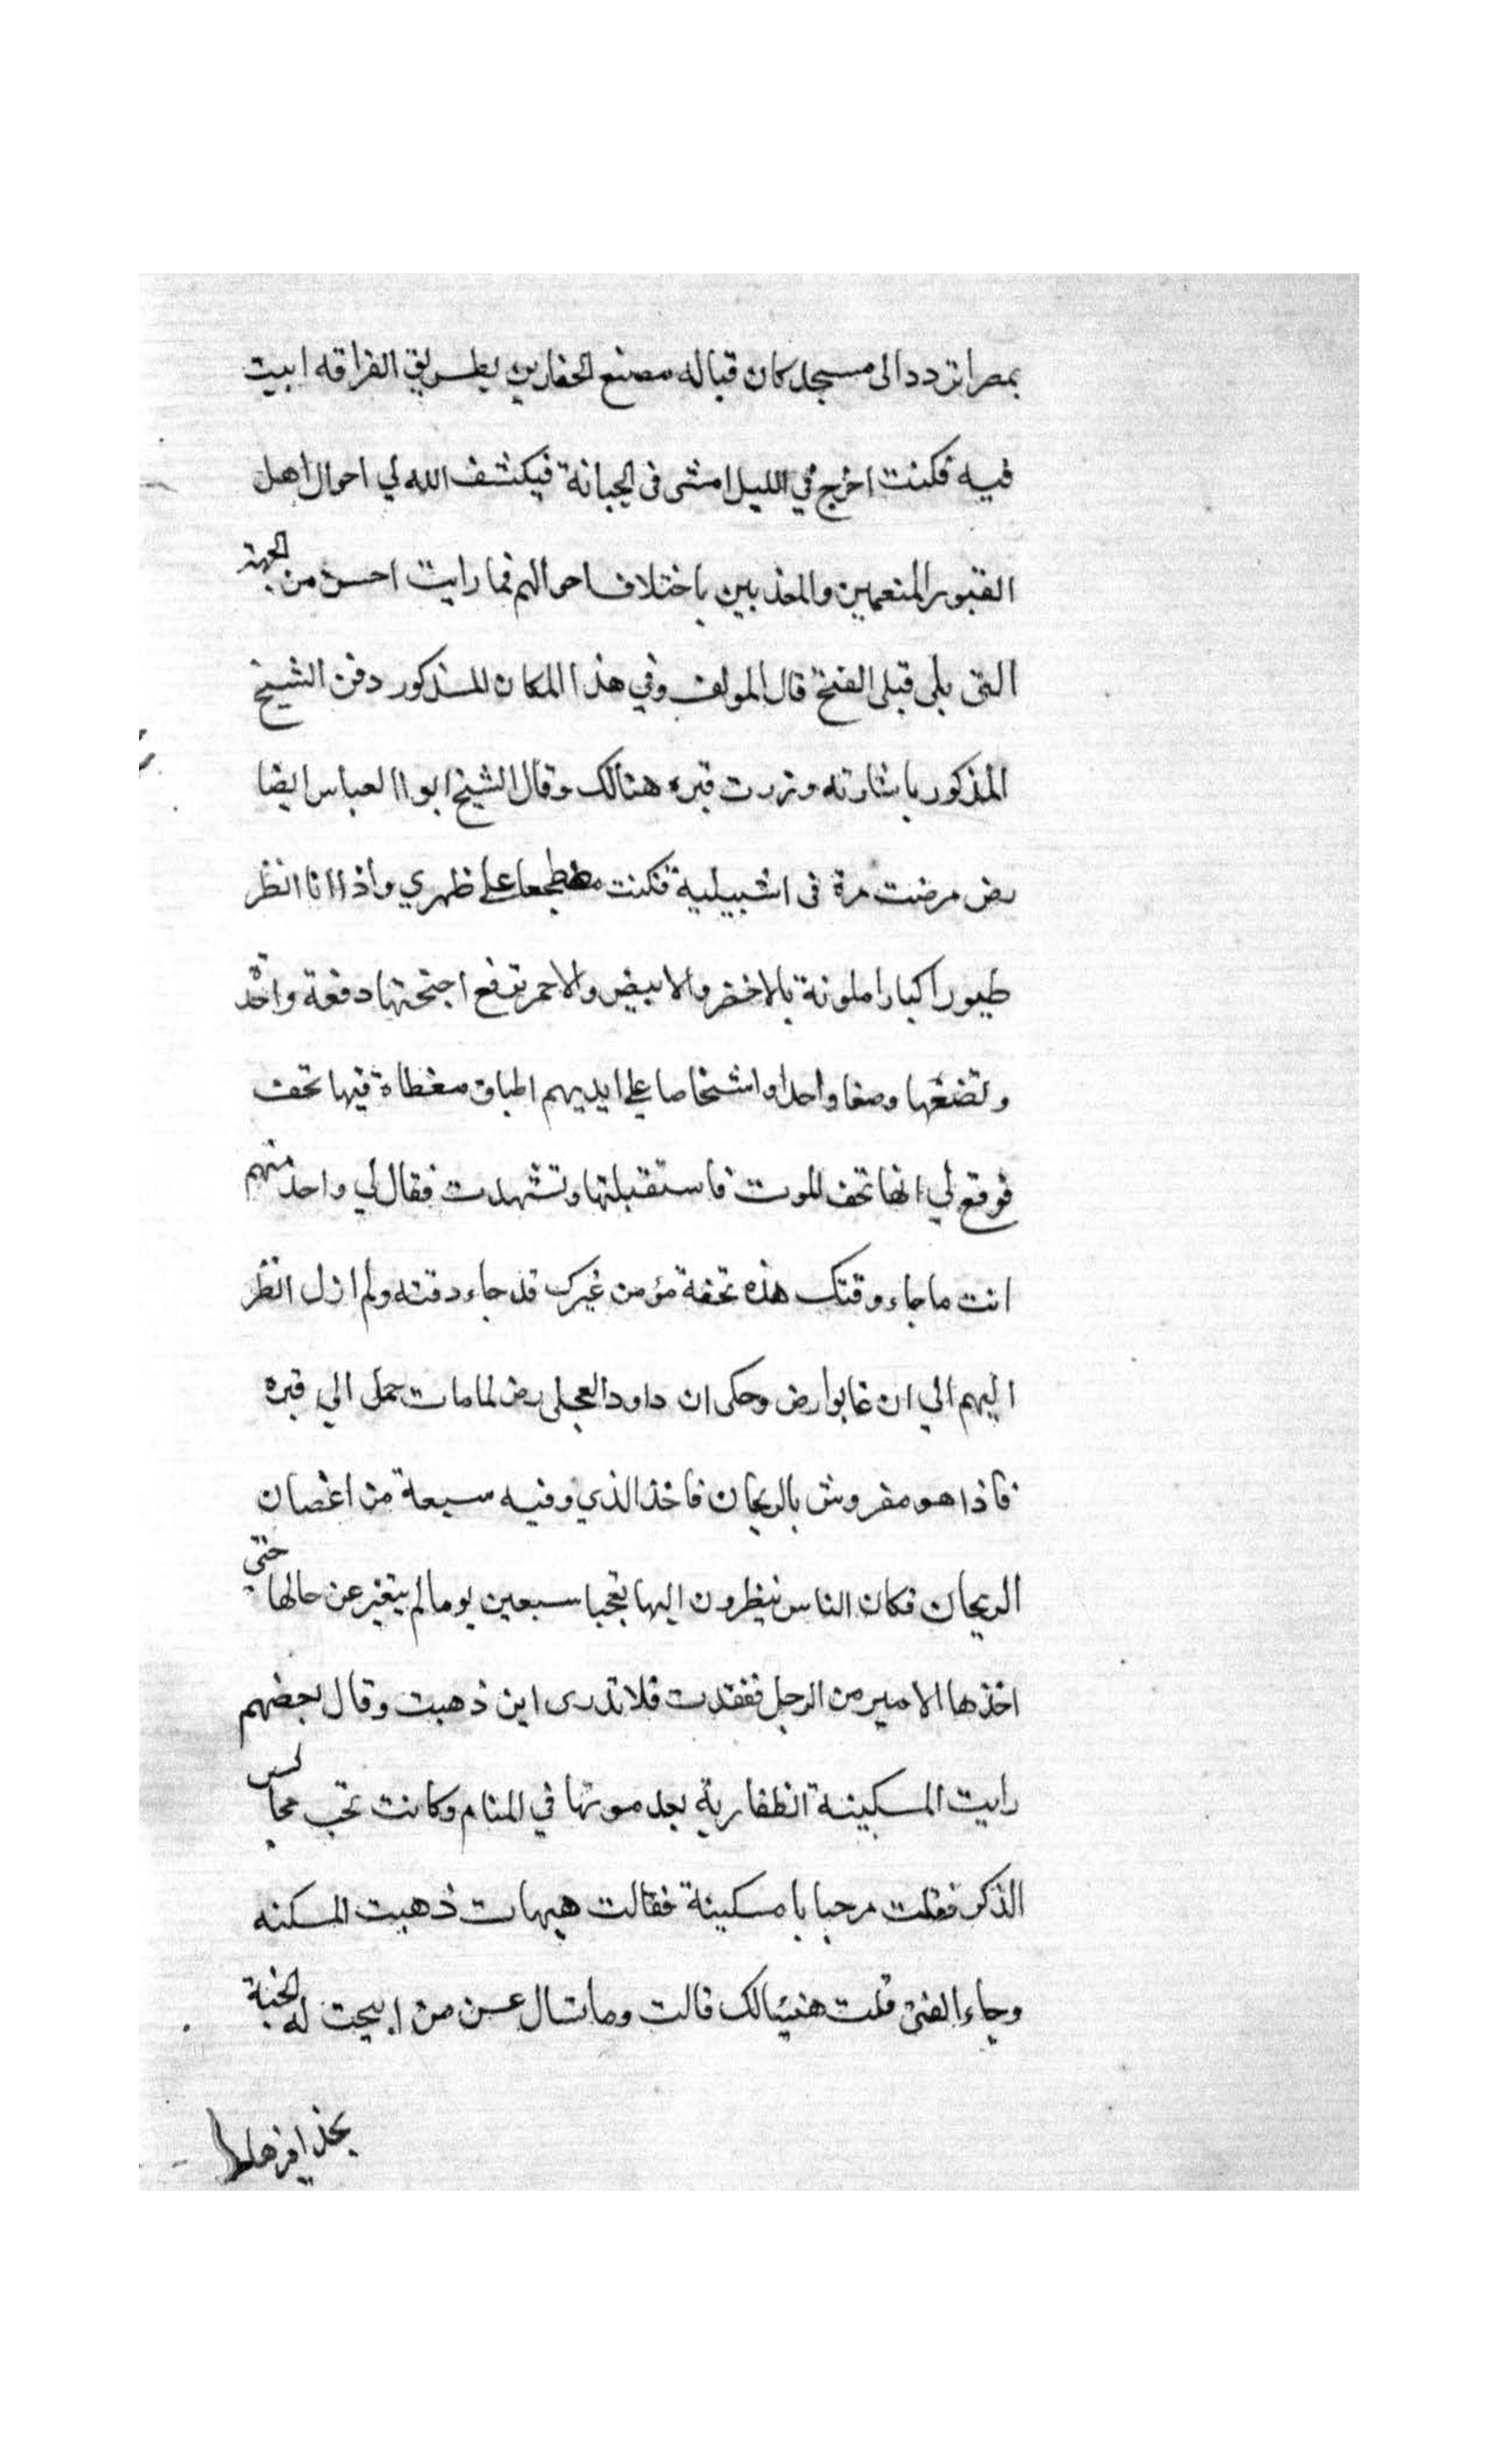 بمصر اتردد الى مسجد كان قباله مصنع الحفارين بطريق القرافه ابيت
فيه فكنت اخرج في الليل امشى فى الجبانة فيكشف الله لي احوال اهل
القبور المنعمين والمعذبين باختلاف احوالهم فما رايت احسن من الجهة
التى يلى قبلى الفتح قال المولف وفي هذا المكان المذكور دفن الشيخ
المذكور باشارته وزرت قبره هنالك وقال الشيخ ابو العباس ايضا
رض مرضت مرة فى اشبيلية فكنت مضطجعا على ظهري واذا انا انظر
طيورا كبارا ملونة بالاخضر والابيض والاحمر ترفع اجنحتها دفعة واحدة
وتضعها وصفا واحدا واشخاصا على ايديهم اطباق مغطاة فيها تحف
فوقع لي انها تحف الموت فاستقبلتها وتشهدت فقال لي واحد منهم
انت ما جاء وقتك هذه تحفة مؤمن غيرك قد جاء وقته ولم ازل انظر
اليهم الي ان غابوا رض وحكى ان داود العجلى رض لما مات حمل الي قبره
فاذا هو مفروش بالريحان فاخذ الذي وفيه سبعة من اغصان
الريحان فكان الناس ينظرون اليها تعجبا سبعين يوما لم يتغير عن حالها حتى
اخذها الامير من الرجل ففقدت فلا تدرى اين ذهبت وقال بعضهم
رايت المسكينة الظفارية بعد موتها في المنام وكانت تحب مجالس
الذكر فقلت مرحبا يا مسكينة فقالت هيهات ذهبت المسكنه
وجاء الغنى قلت هنيئا لك قالت وما تسال عن من ابيحت له الجنة
بحذافيرها